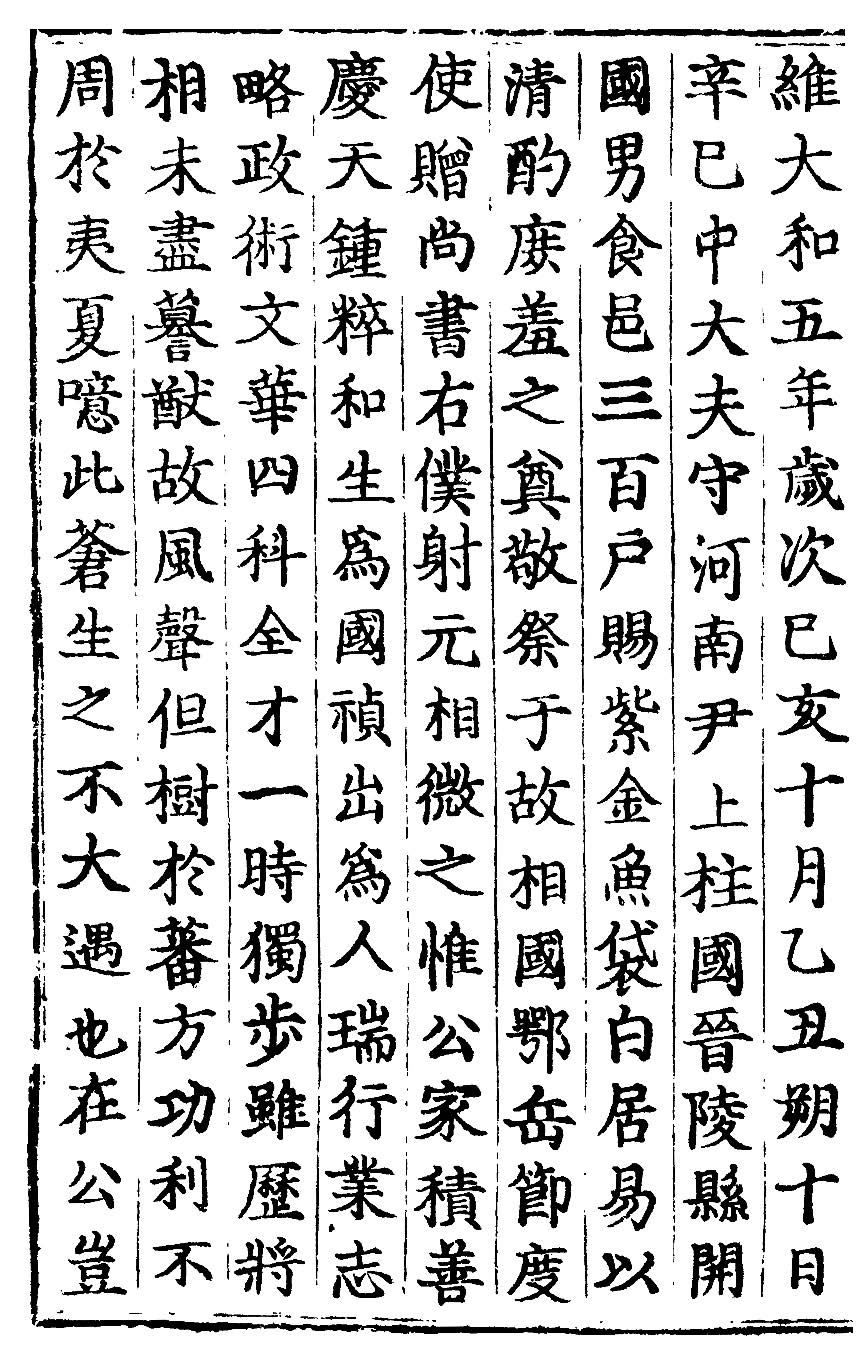 維大和五年歲次已亥十月乙丑朔十日
辛巳中大夫守河南尹上柱國晉陵縣開
國男食邑三百戶賜紫金魚袋白居易以
清酌庶羞之奠敬祭于故相國鄂岳節度
使贈尚書右僕射元相微之惟公家積善
慶天鍾粹和生爲國禎出爲人瑞行業志
略政術文華四科全才一時獨步雖歷將
相未盡謩猷故風聲但樹於蕃方功利不
周於夷夏噫此蒼生之不大遇也在公豈